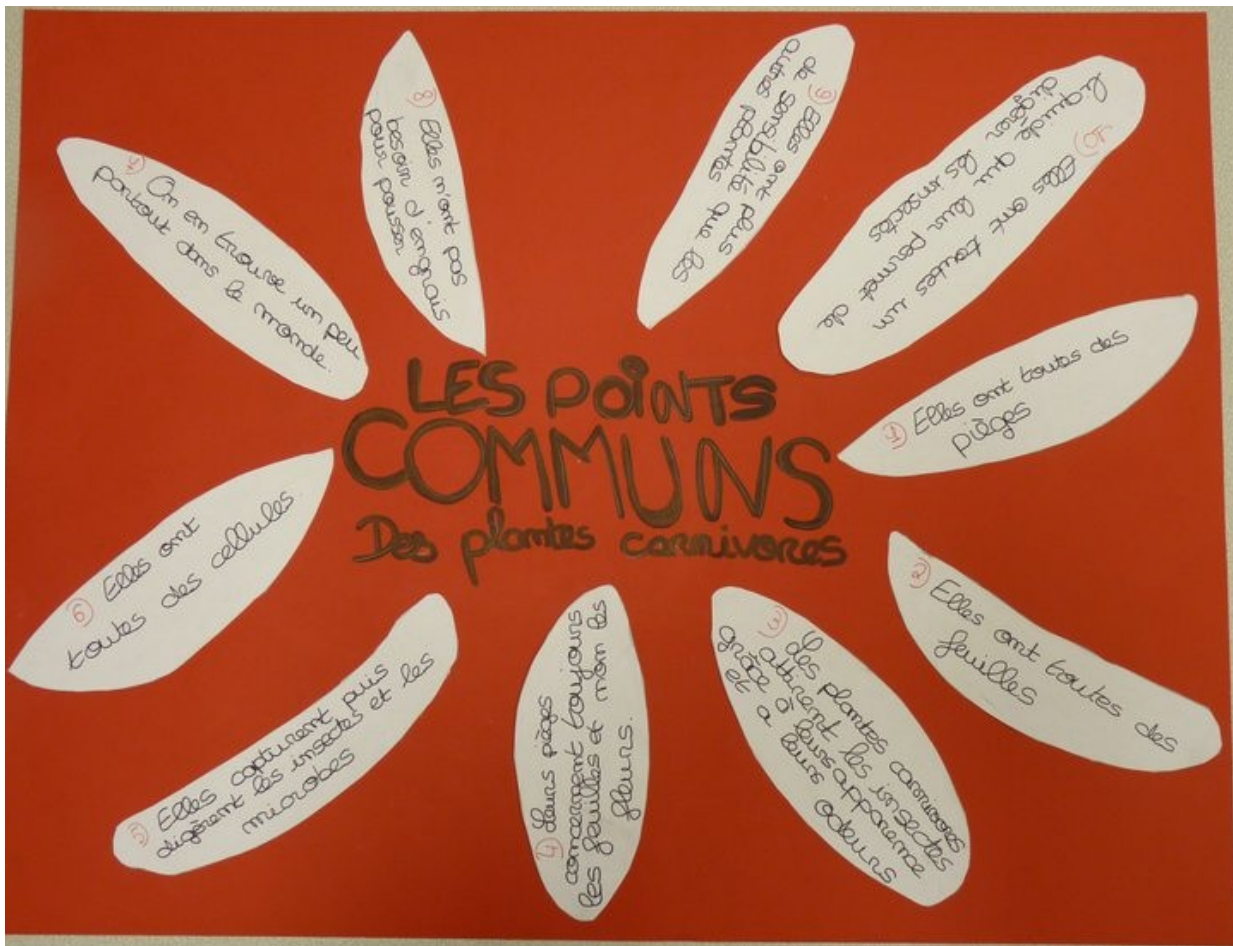 LES POINTS
COMMUNS
Des plantes carnivores
1) Elles ont toutes des
pièges
2) Elles ont toutes des
feuilles
3) Les plantes carnivores
attirent les insectes
grâce à leurs apparence
et a leurs odeurs
4) Leurs pièges
concernent toujours
les feuilles et non les
fleurs.
5) Elles capturent puis
digèrent les insectes et les
microbes
6) Elles ont
toutes des cellules.
7) On en trouve un peu
partout dans le monde.
8) Elles n'ont pas
besoin d'engrais
pour pousser
9) Elles ont plus
de sensibilité que les
autres plantes
10) Elles ont toutes un
liquide qui leur permet de
digérer les insectes